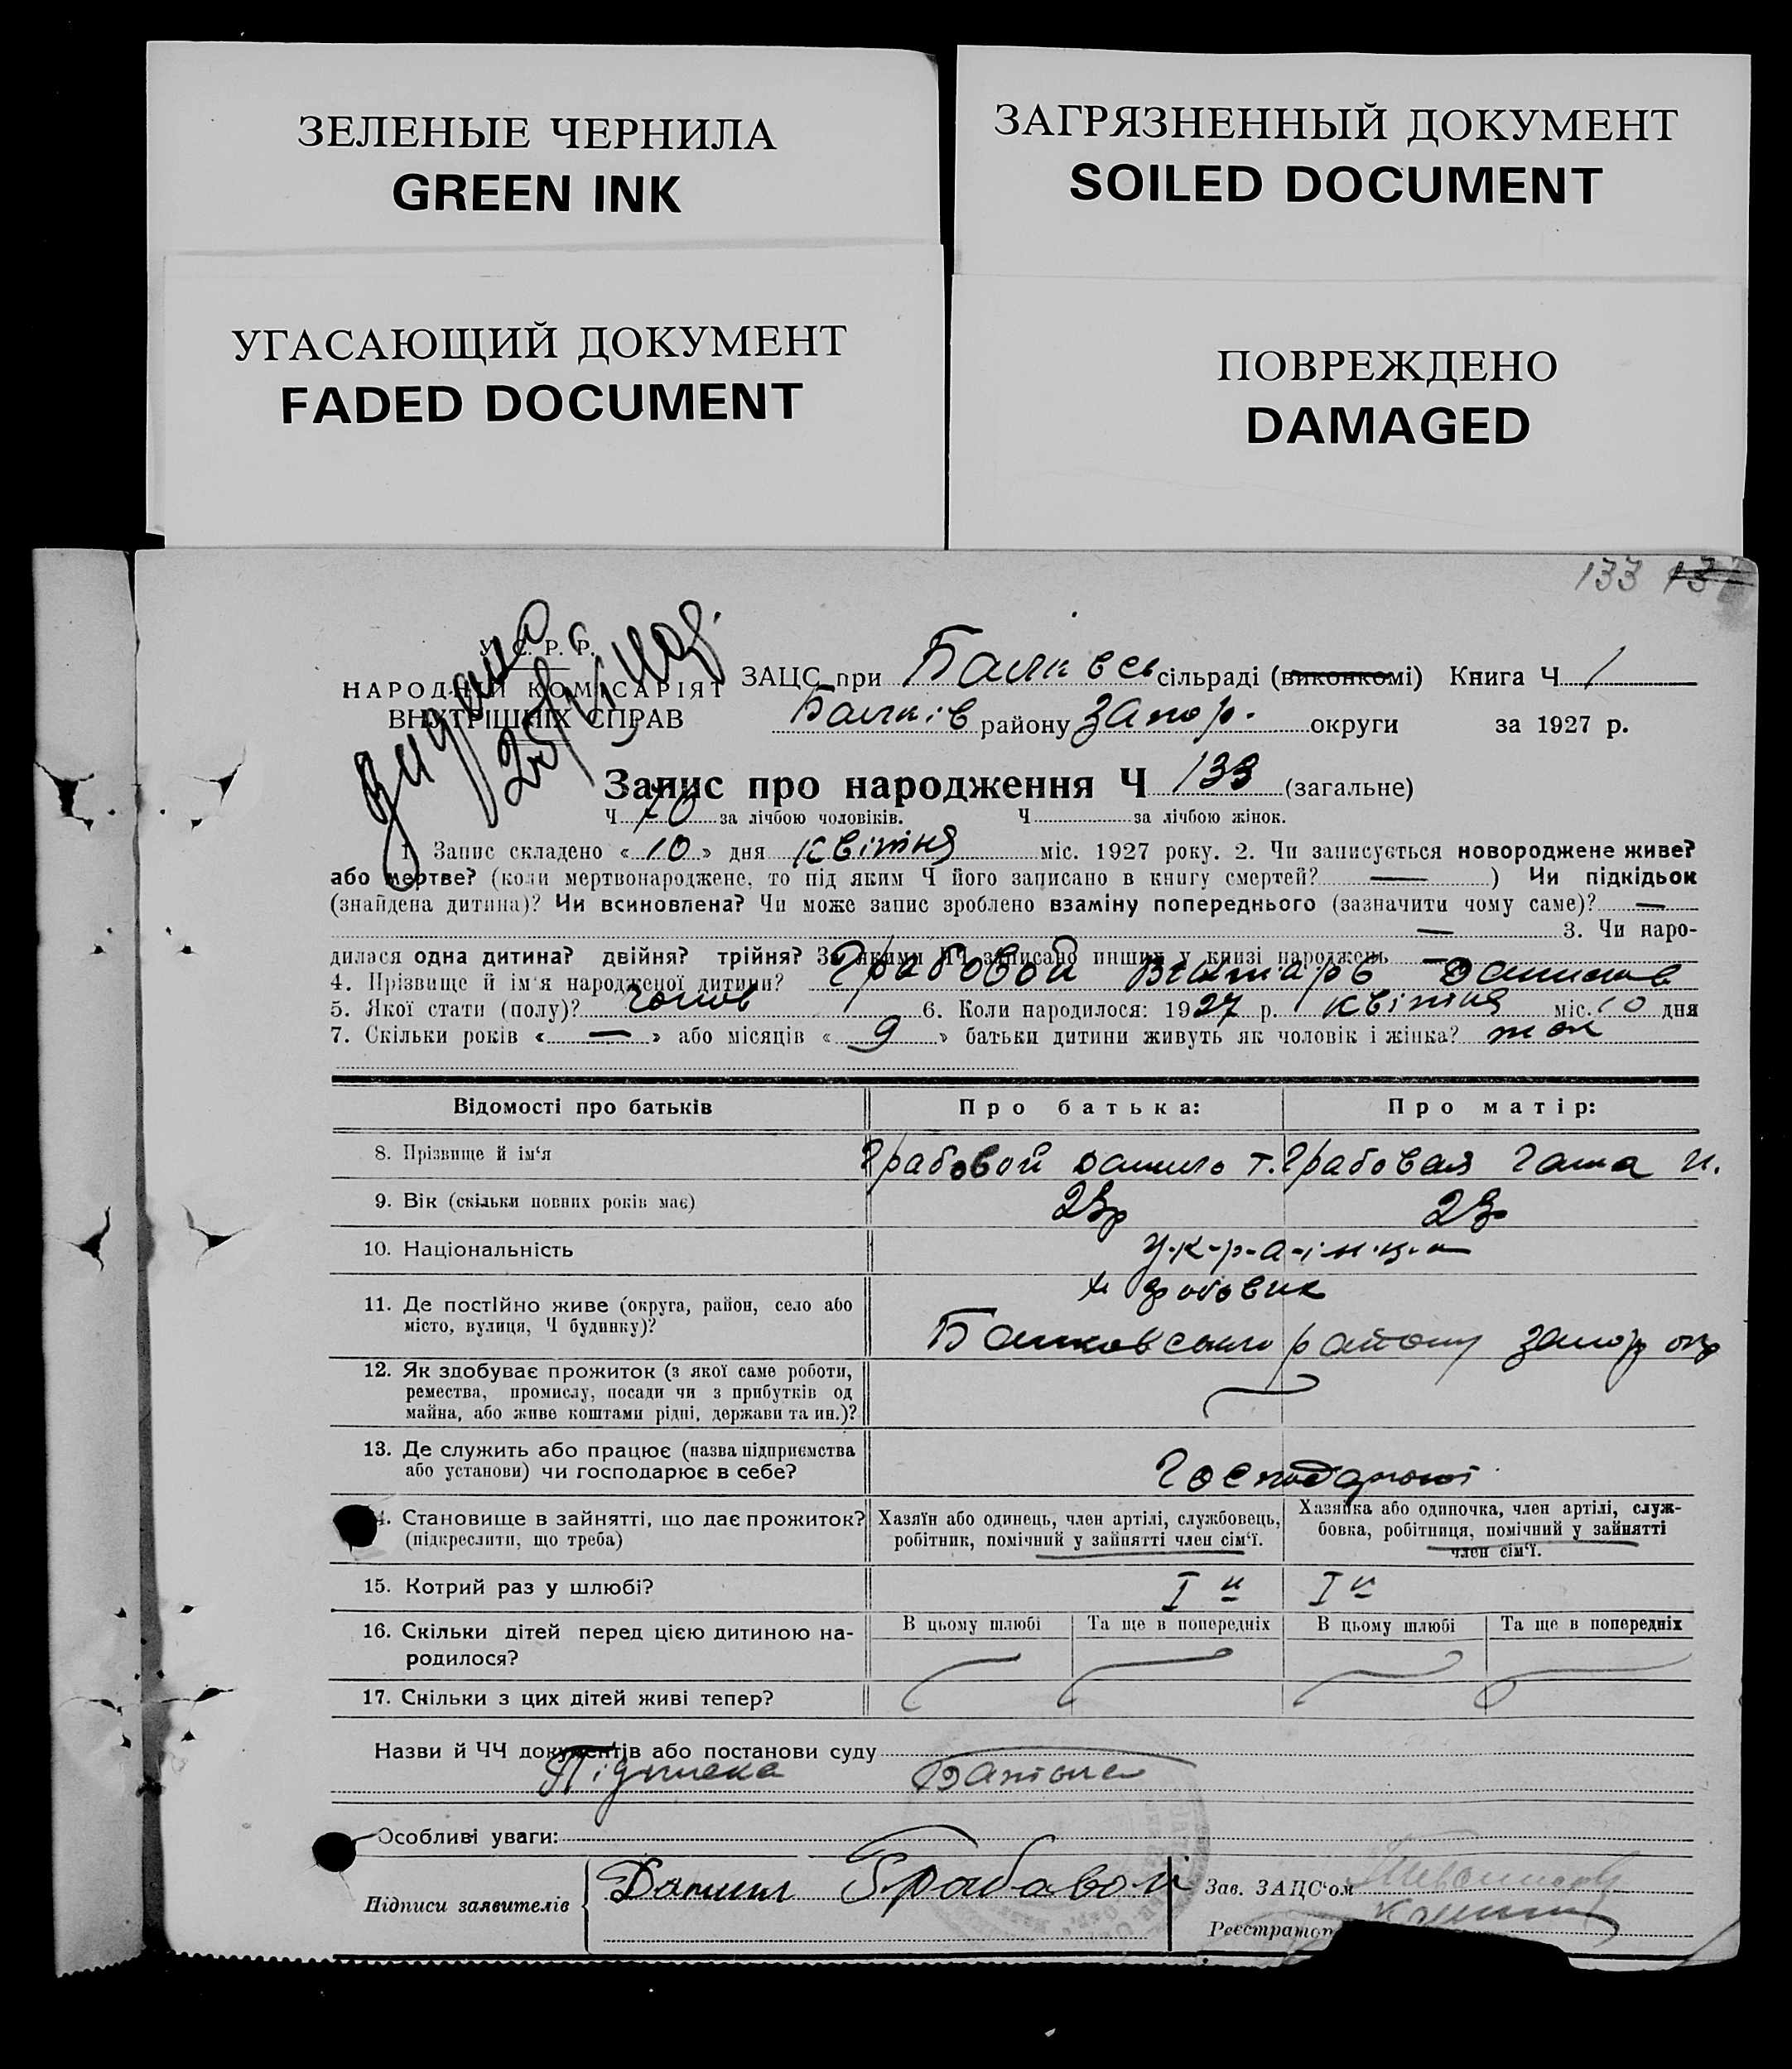 ЗЕЛЕНЫЕ ЧЕРНИЛА
GREEN INK
ЗАГРЯЗНЕННЫЙ ДОКУМЕНТ
SOILED DOCUMENT
УГАСАЮЩИЙ ДОКУМЕНТ
FADED DOCUMENT
ПОВРЕЖДЕНО
DAMAGED
133
У. С. Р. Р.
НАРОДНІЙ КОМІСАРІЯТ
ВНУТРІШНІХ СПРАВ
видано
ЗАЦС при Балківсь сільраді (виконкомі) Книга Ч 1
Балків району Запор. округи за 1927 р.
Запис про народження Ч 133 (загальне)
Ч 70 за лічбою чоловіків. Ч за лічбою жінок.
1. Запис складено « 10 » дня квітня міс. 1927 року. 2. Чи записується новороджене живе?
або мертве? (коли мертвонароджене, то під яким Ч його записано в книгу смертей? — ) Чи підкідьок
(знайдена дитина)? Чи всиновлена? Чи може запис зроблено взаміну попереднього (зазначити чому саме)? —
— 3. Чи наро-
дилася одна дитина? двійня? трійня? За якими ЧЧ записано инших у книзі народжень —
4. Прізвище й ім'я народженої дитини? Грабовой
5. Якої стати (полу)? чолов 6. Коли народилося: 1927 р. квітня міс. 10 дня
7. Скільки років « — » або місяців « 9 » батьки дитини живуть як чоловік і жінка? так
Відомості про батьків Про батька: Про матір:
8. Прізвище й ім'я Грабовой Данило Т. Грабовая Галя И.
9. Вік (скільки повних років має) 23р 23р
10. Національність у-к-р-а-ї-н-ц-и
11. Де постійно живе (округа, район, село або
місто, вулиця, Ч будинку)?
Балковського району Запор окр
12. Як здобуває прожиток (з якої саме роботи,
ремества, промислу, посади чи з прибутків од
майна, або живе коштами рідні, держави та ин.)?
13. Де служить або працює (назва підприємства
або установи) чи господарює в себе?
Господарюют
14. Становище в зайнятті, що дає прожиток?
(підкреслити, що треба)
Хазяїн або одинець, член артілі, службовець,
робітник, помічний у зайнятті член сім'ї.
Хазяйка або одиночка, член артілі, служ-
бовка, робітниця, помічний у зайнятті
член сім'ї.
15. Котрий раз у шлюбі? I й I й
16. Скільки дітей перед цією дитиною на-
родилося?
В цьому шлюбі Та ще в попередніх В цьому шлюбі Та ще в попередніх
17. Скільки з цих дітей живі тепер?
Назви й ЧЧ документів або постанови суду
Підписка Батька
Особливі уваги:
Підписи заявителів Данил Грабавой
Зав. ЗАЦС'ом
Реєстратор